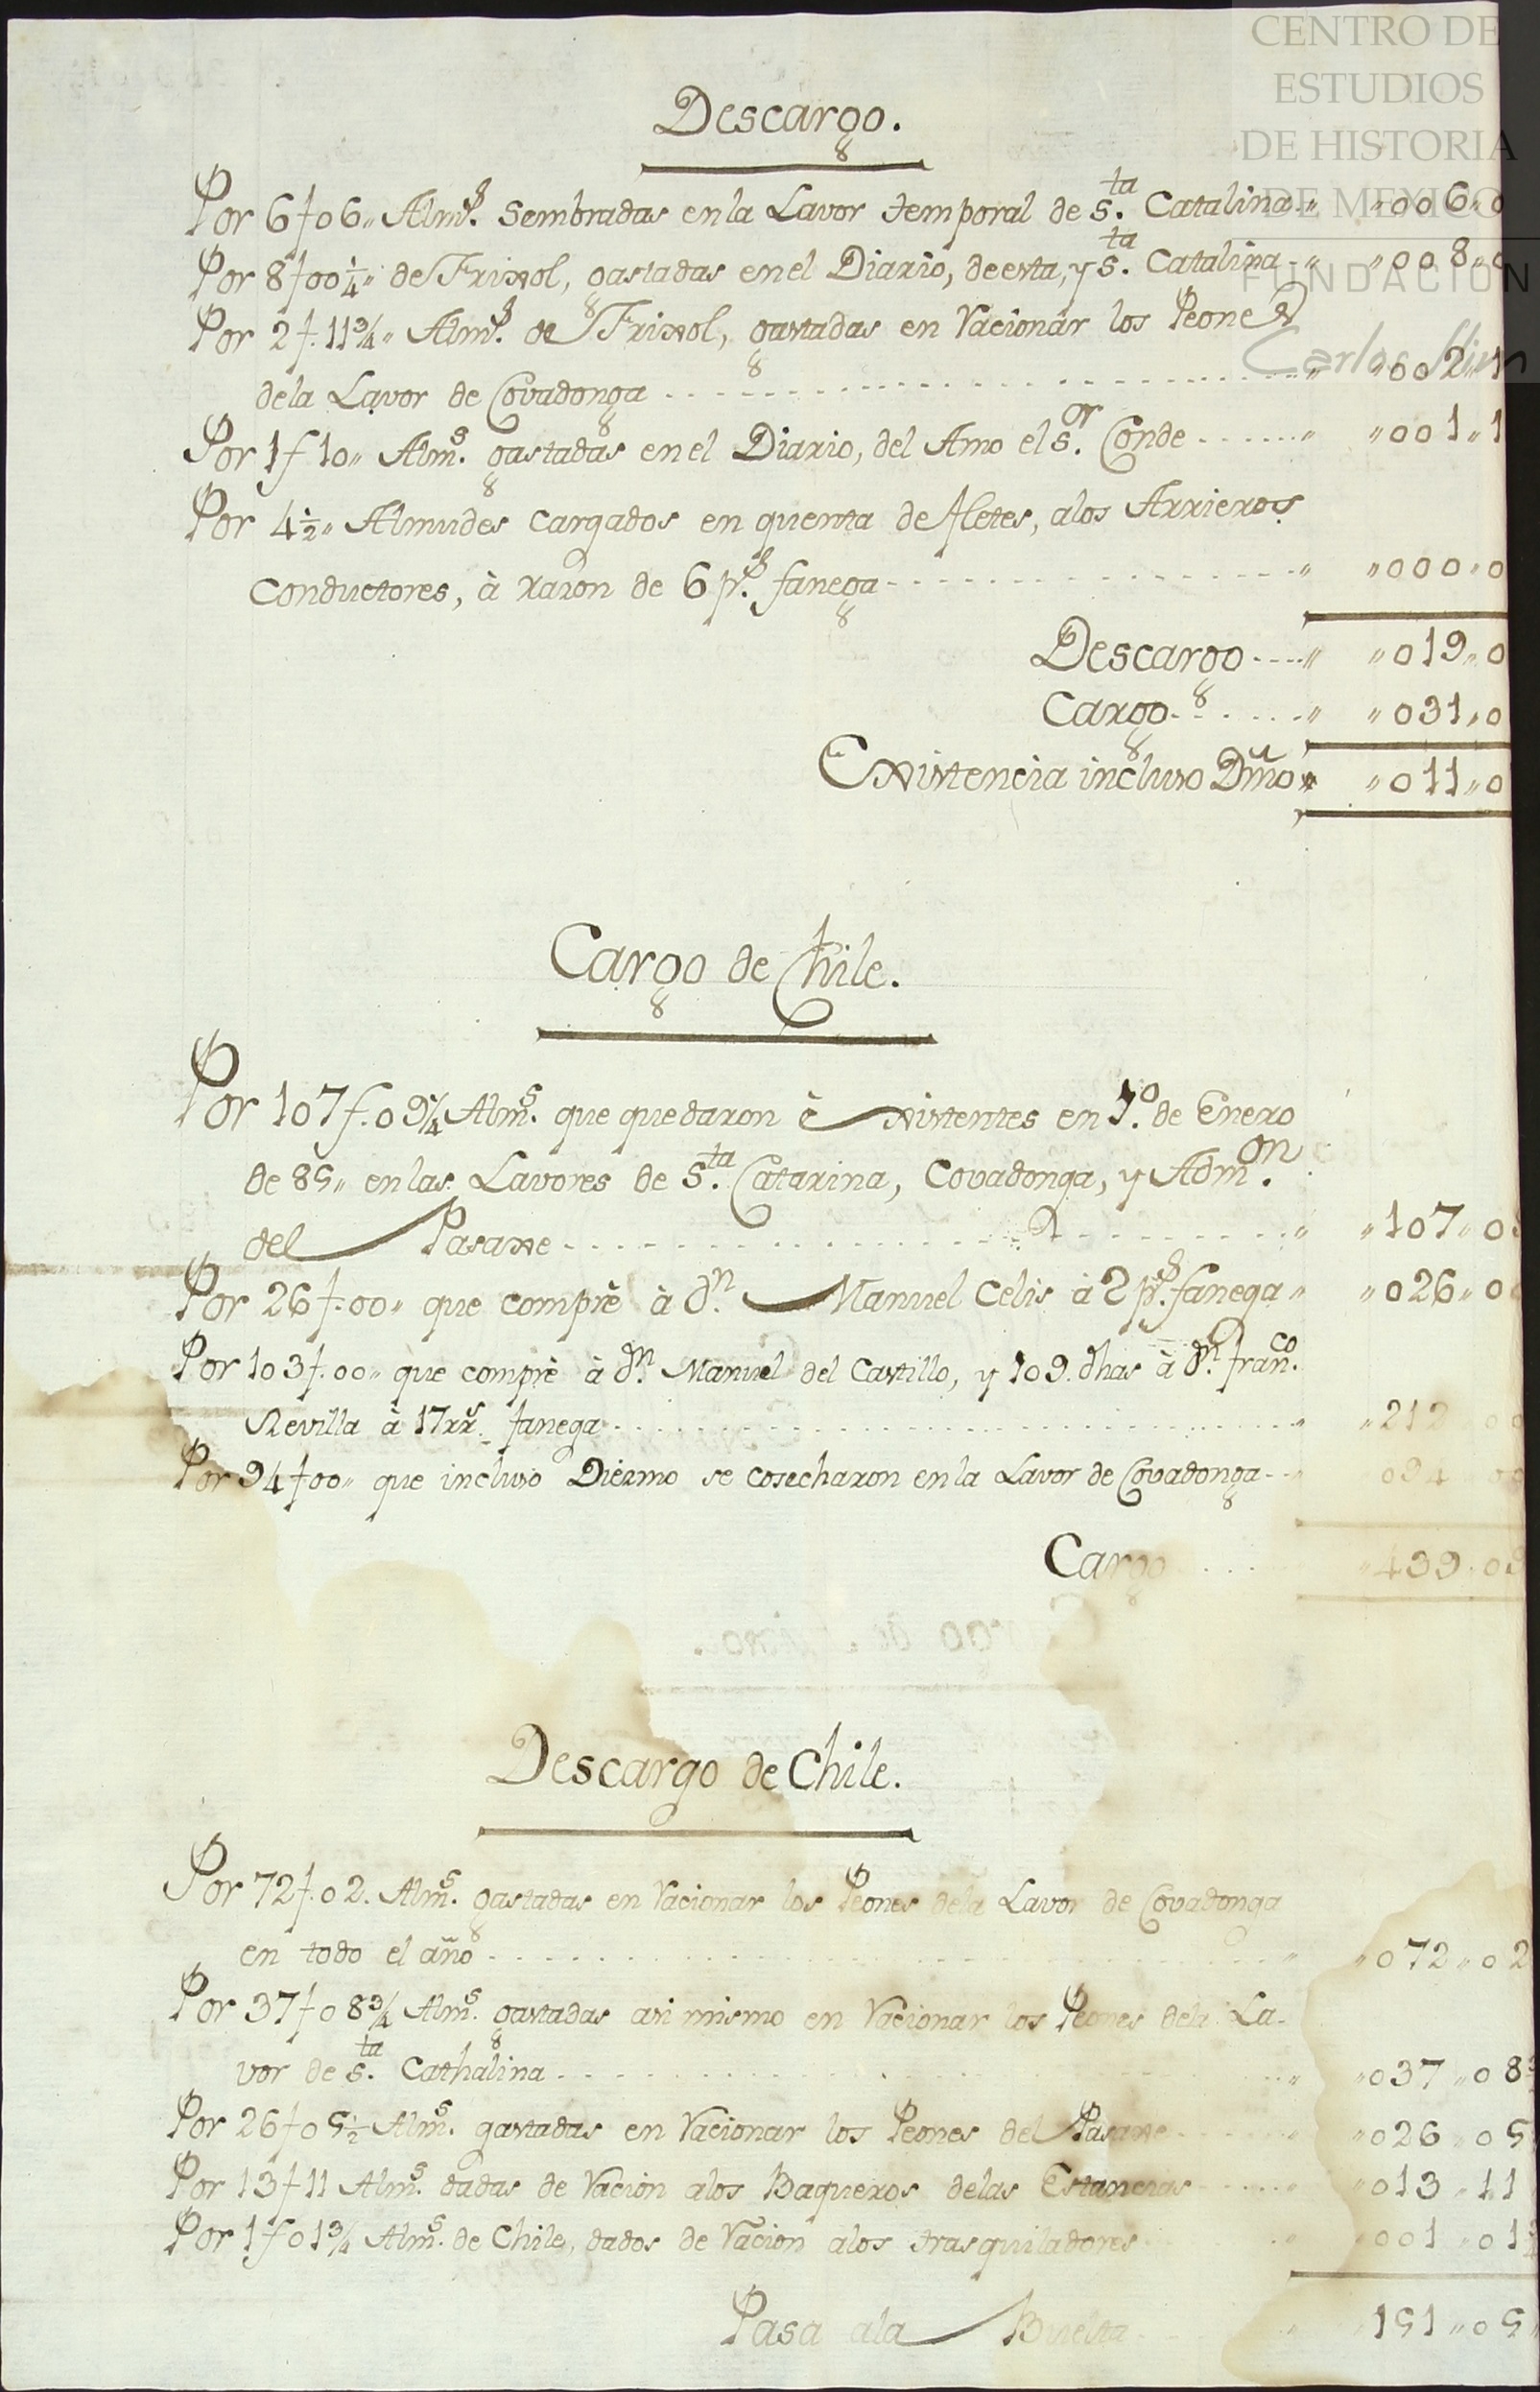 CENTRO DE
ESTUDIOS
DE HISTORIA
DE MEXICO
FUNDACION
Carlos Slim
Descargo.
Por 6 f 06,, Alms. Sembradas en la Lavor temporal de Sta. Catalina ,, ,,006,,0
Por 8 f 00 1/4,, de Frixol, gastadas en el Diario, de esta, y Sta. Catalina ,, ,,008,,0
Por 2 f. 11 3/4,, Alms. de Frixol, gastadas en Racionar los Peones
de la Lavor de Covadonga ,, ,,002,,1
Por 1 f 10,, Alms. gastadas en el Diario, del Amo el Sor. Conde ,, ,,001,,1
Por 4 1/2,, Almudes cargados en quenta de fletes, alos Arrieros
Conductores, à razon de 6 ps. fanega ,, ,,000,,0
Descargo ,, ,,019,,0
Cargo ,, ,,031,,0
Existencia incluso Dmo ,, ,,011,,0
Cargo de Chile.
Por 107 f. 09 1/4 Alms. que quedaron èxistentes en 1o. de Enero
de 85,, en las Lavores de Sta. Catarina, Covadonga, y Admon.
del Pasaxe ,, ,,107,,0
Por 26 f. 00,, que comprè à dn. Manuel Celis à 2 ps. fanega ,, ,,026,,00
Por 103 f. 00,, que comprè à dn. Manuel del Castillo, y 109. dhas à dn. franco.
Revilla à 17 rrs. fanega ,, ,,212 00
Por 94 f 00,, que incluso Diezmo se cosecharon en la Lavor de Covadonga ,, 094 00
Cargo ,,439,,09
Descargo de Chile.
Por 72 f. 02. Alms. gastadas en Racionar los Peones dela Lavor de Covadonga
en todo el año ,, ,,072,,02
Por 37 f 08 3/4 Alms. gastadas asi mismo en Racionar los Peones dela La-
vor de Sta. Cathalina ,, ,,037,,08
Por 26 f 05 1/2 Alms. gastadas en Racionar los Peones del Pasaxe ,, ,,026,,05
Por 13 f 11 Alms. dadas de Racion alos Baqueros delas Estancias ,, ,,013,,11
Por 1 f 01 3/4 Alms. de Chile, dados de Racion alos trasquiladores ,, ,,001,,01
Pasa ala Buelta ,, 151,,05